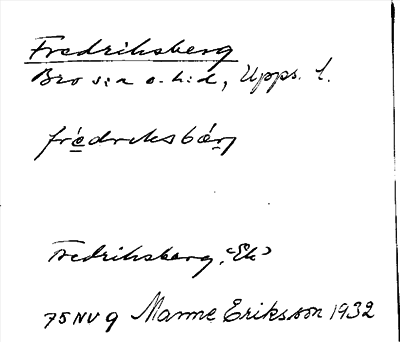 Fredriksberg
Bro s:n o. h:d, Upps. l.
frédriksbárj
Fredriksberg, "Ek"
75 NV 9 Manne Eriksson 1932